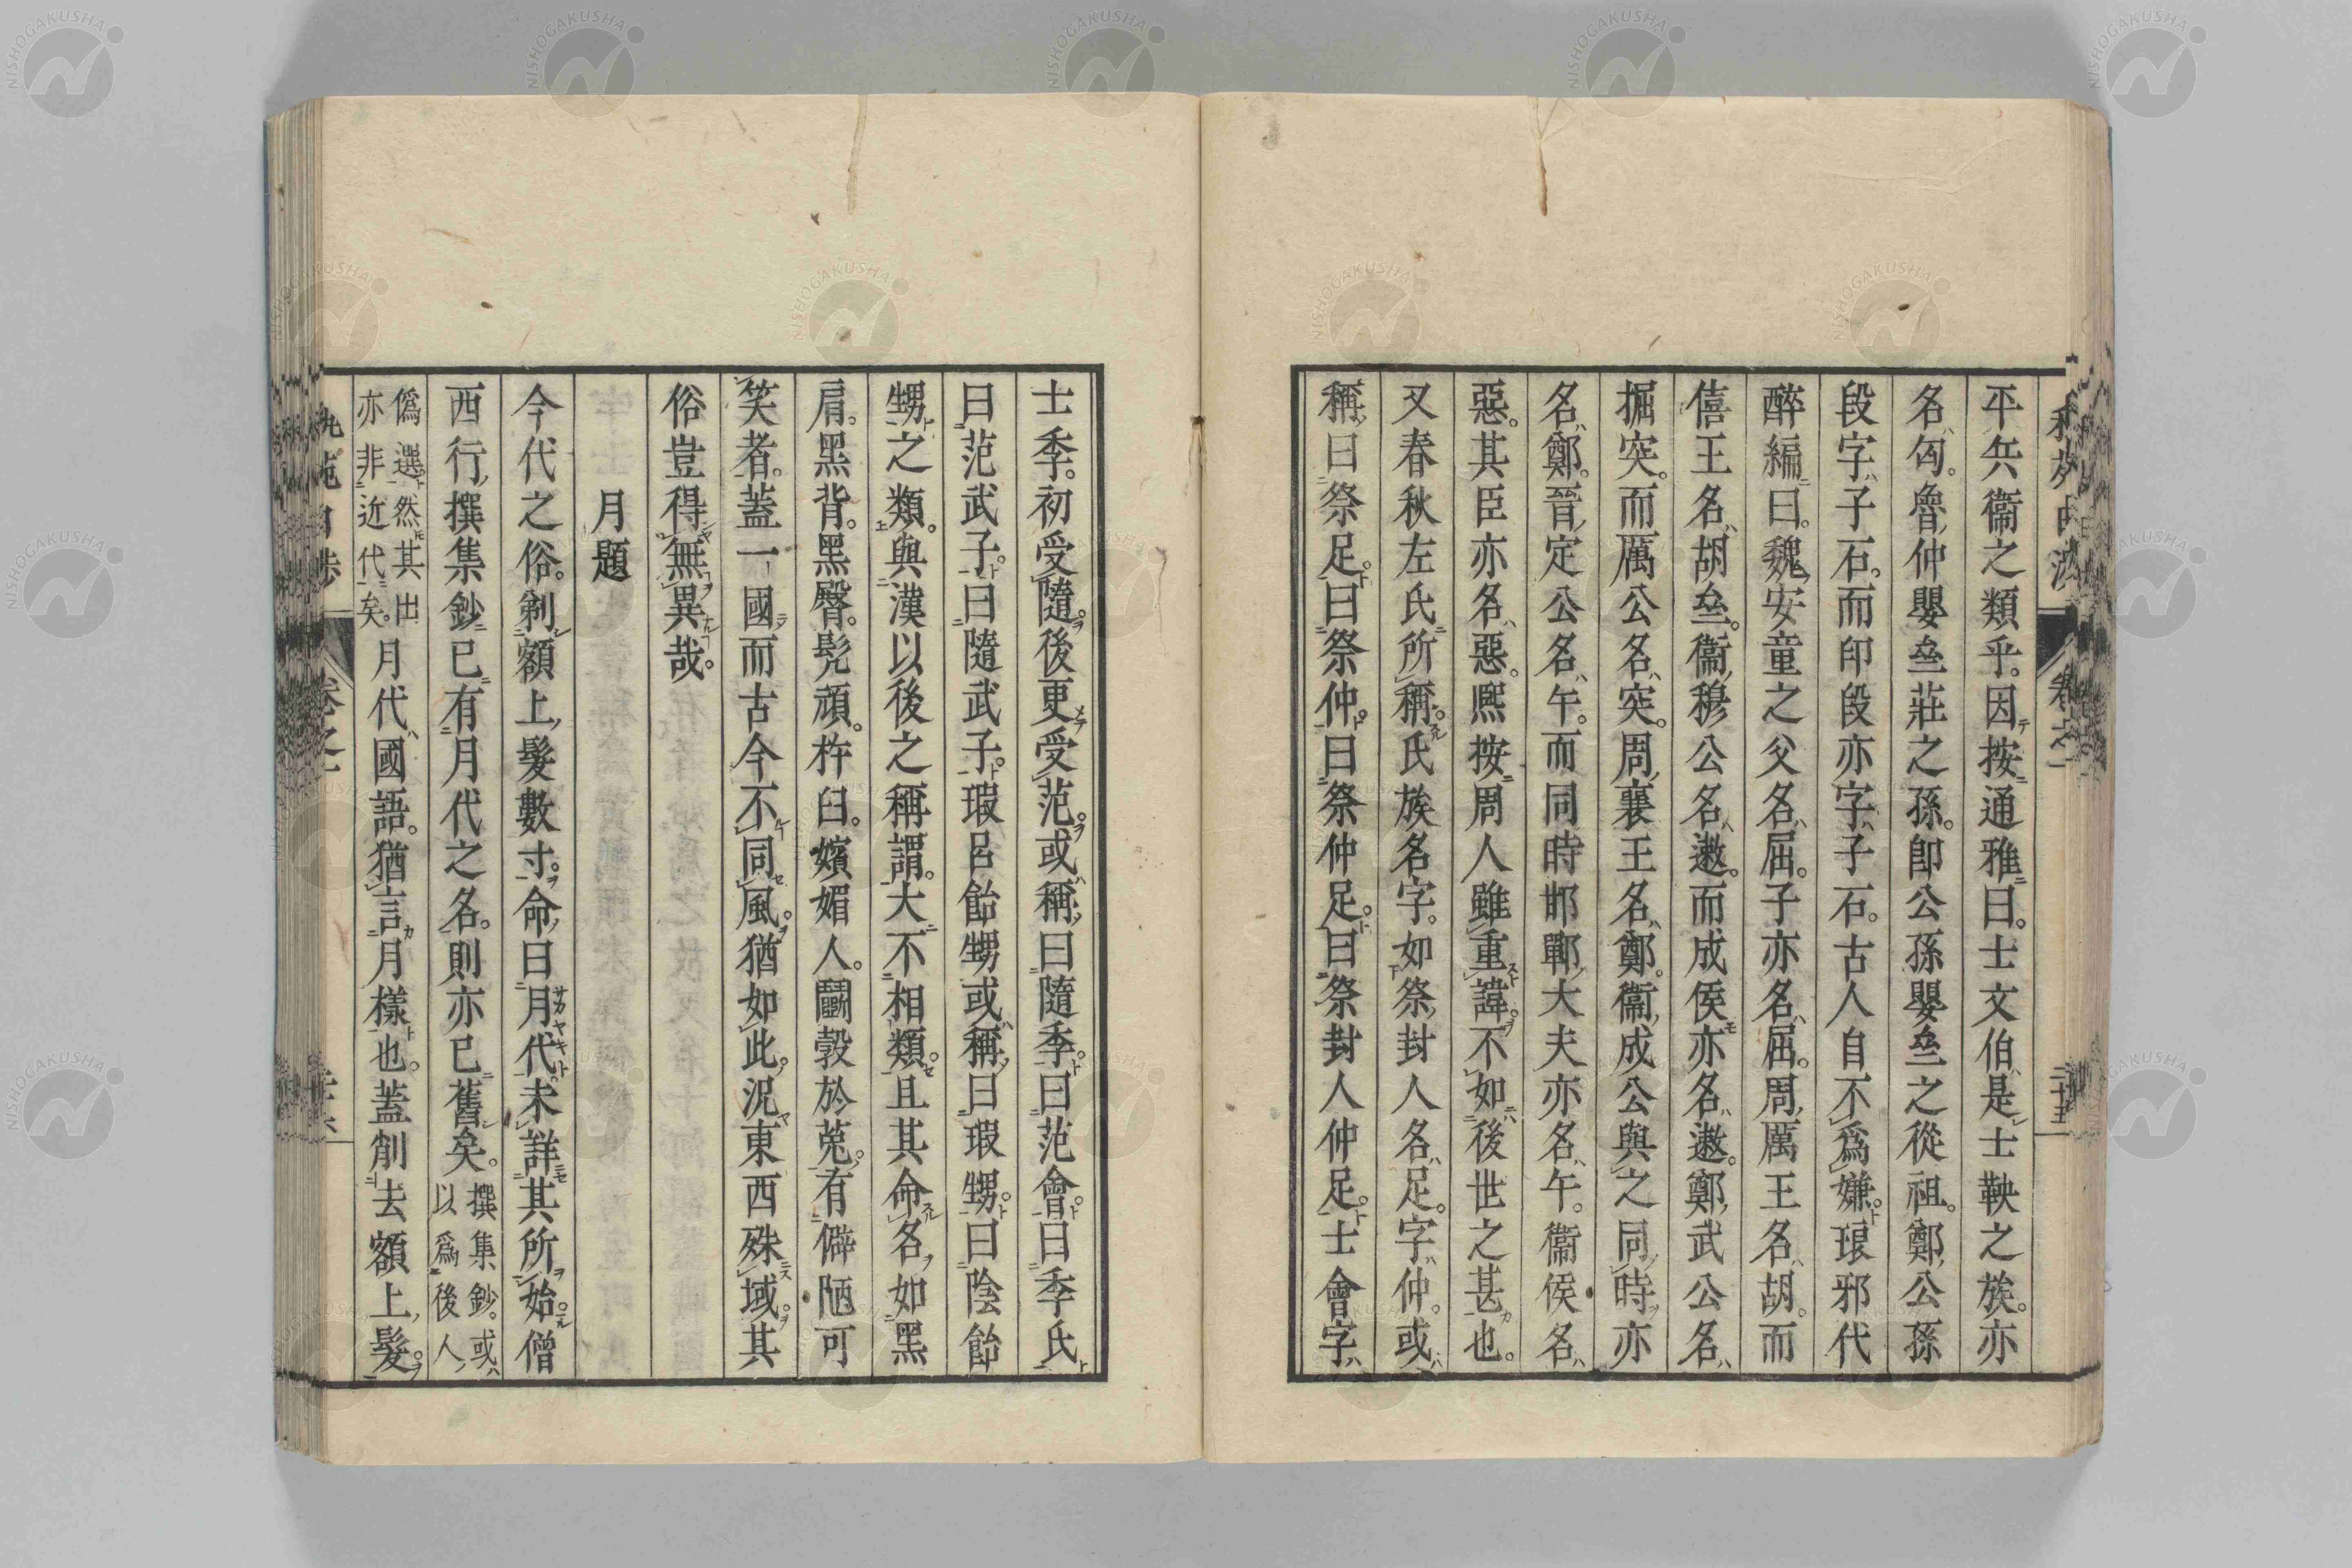 平兵衞之類乎。因按通雅曰。士文伯是士鞅之族。亦
名匃。魯仲嬰齊莊之孫。卽公孫嬰齊之從祖。鄭公孫
段字子石。而印段亦字子石。古人自不爲嫌。琅邪代
醉編曰。魏安童之父名屈。子亦名屈。周厲王名胡。而
僖王名胡齊。衞穆公名遬。而成侯亦名遬。鄭武公名
掘突。而厲公名突。周襄王名鄭。衞成公與之同時亦
名鄭。晉定公名午。而同時邯鄲大夫亦名午。衞侯名
惡。其臣亦名惡。熈按周人雖重諱。不如後世之甚也。
又春秋左氏所稱氏族名字。如祭封人名足。字仲。或
稱曰祭足。曰祭仲。曰祭仲足。曰祭封人仲足。士會字
士季。初受隨。後更受范。或稱曰隨季。曰范會。曰季氏
曰范武子。曰隨武子。瑕呂飴甥或稱曰瑕甥。曰陰飴
甥之類。與漢以後之稱謂。大不相類。且其命名如黑
肩。黑背。黑臀。髡頑。杵臼。嬪媚人。鬭穀於菟。有僻陋可
笑者。蓋一國而古今不同風。猶如此。況東西殊域。其
俗豈得無異哉。
月題
今代之俗。剃額上髮數寸。命曰月代。未詳其所始。僧
西行撰集鈔已有月代之名。則亦已舊矣。撰集鈔。或以爲後人
僞選。然其出亦非近代矣。月代國語。猶言月樣也。蓋削去額上髮。
卷之一
二十五